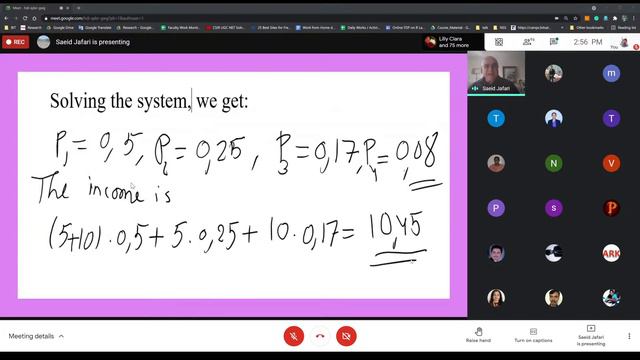 Meet - hdi-qdvr-geq
meet.google.com/hdi-qdvr-geq?pli=1&authuser=1
Apps
REC
Saeid Jafari is presenting
Lilly Clara
and 75 more
2:56 PM
You
Solving the system, we get:
P₁ = 0,5, P₂ = 0,25, P₃ = 0,17, P₄ = 0,08
The income is
(5+10) · 0,5 + 5 · 0,25 + 10 · 0,17 = 10,45
Saeid Jafari
m
T
T
N
V
P
s
P
ARK
T
Meeting details
Raise hand
Turn on captions
Saeid Jafari
is presenting